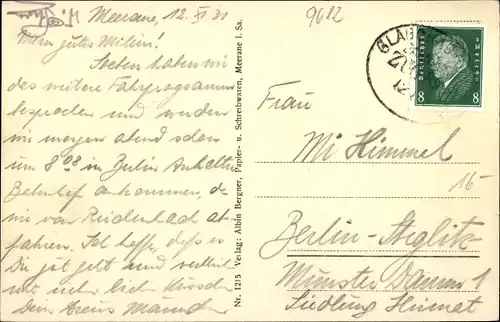 Meerane, 12. XI. 31
Mein gutes Milein!
Soeben haben wir
das weitere Fahrprogramm
besprochen und werden
wir morgen abend schon
um 8 08 in Berlin Anhalter
Bahnhof ankommen, da
wir von Reudenbad ab-
fahren. Ich hoffe, daß es
Dir gut geht und
mit
Dein treues
Nr. 1215 Verlag: Albin Bergner, Papier- u. Schreibwaren, Meerane i. Sa.
9612
Deutsches Reich
8 8
Frau
Mi Himmel
16-
Berlin-Steglitz
Münster Damm 1
Siedlung Heimat